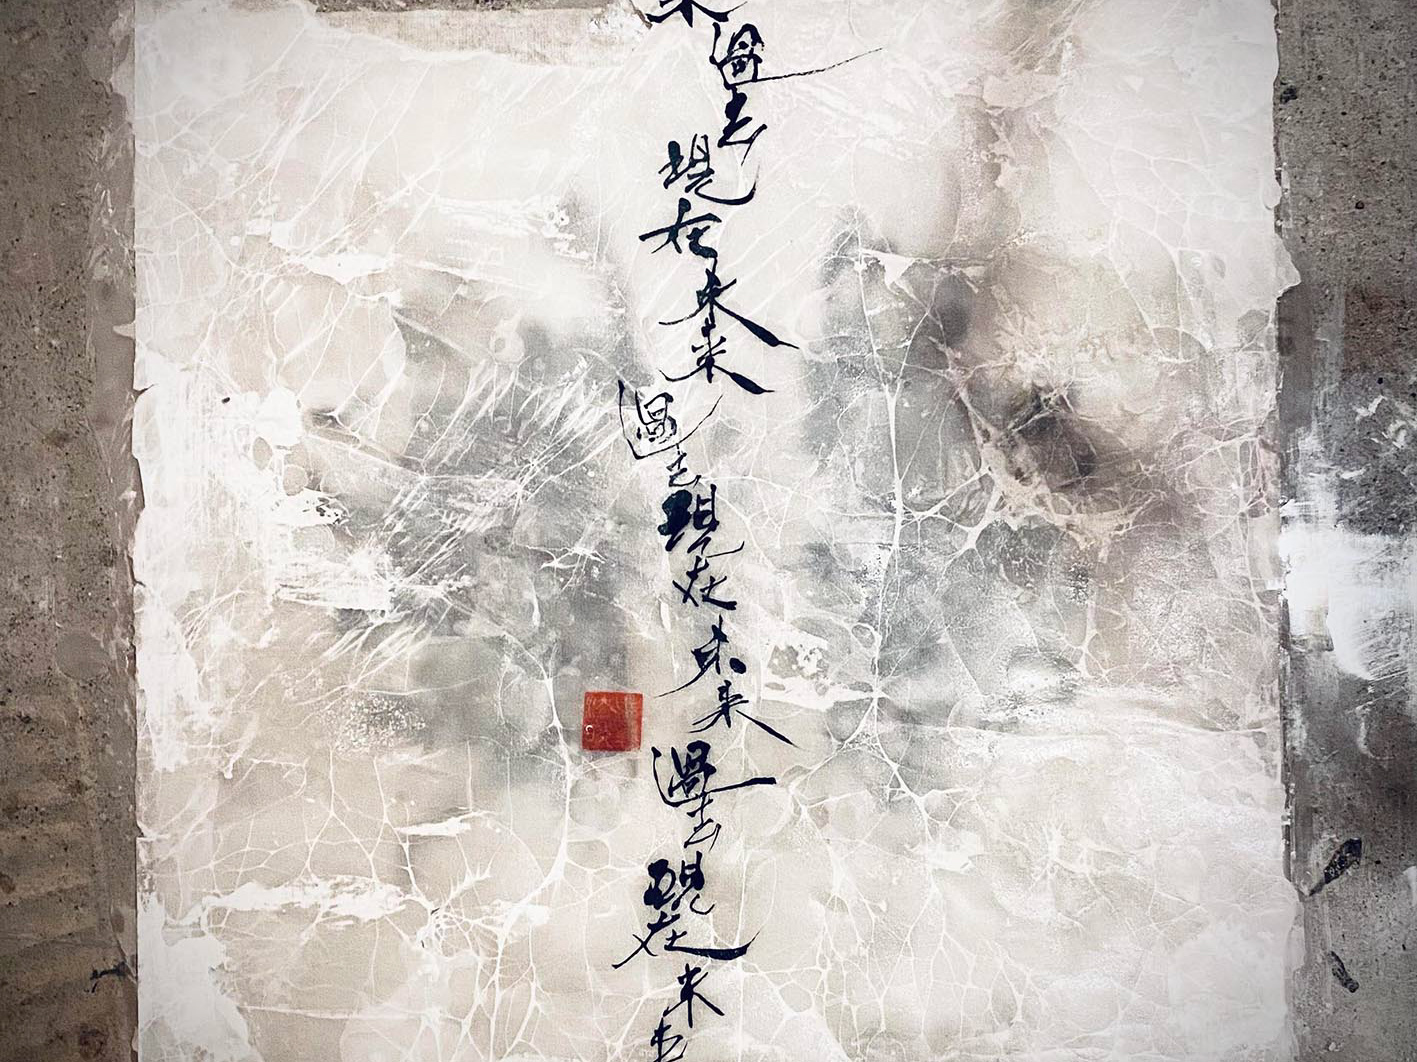 來過去現在未来過去現在未来過去現在未来